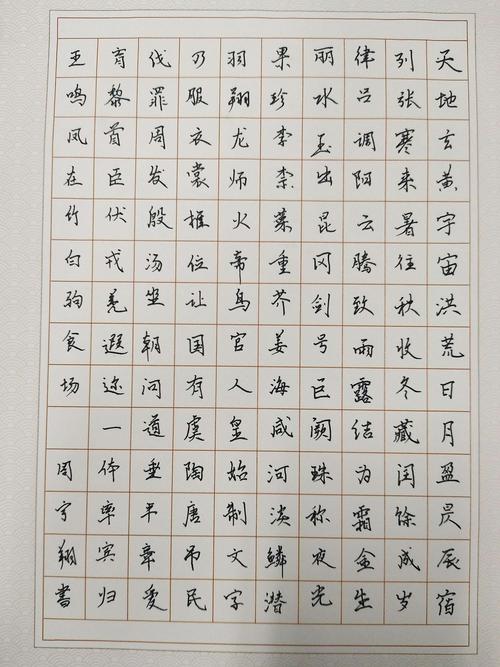 天地玄黄宇宙洪荒日月盈昃辰宿
列张寒来暑往秋收冬藏闰馀成岁
律吕调阳云腾致雨露结为霜金生
丽水玉出昆冈剑号巨阙珠称夜光
果珍李柰菜重芥姜海咸河淡鳞潜
羽翔龙师火帝鸟官人皇始制文字
乃服衣裳推位让国有虞陶唐吊民
伐罪周发殷汤坐朝问道垂平章爱
育黎首臣伏戎羌遐迩一体率宾归
王鸣凤在竹白驹食场
周宇翔书